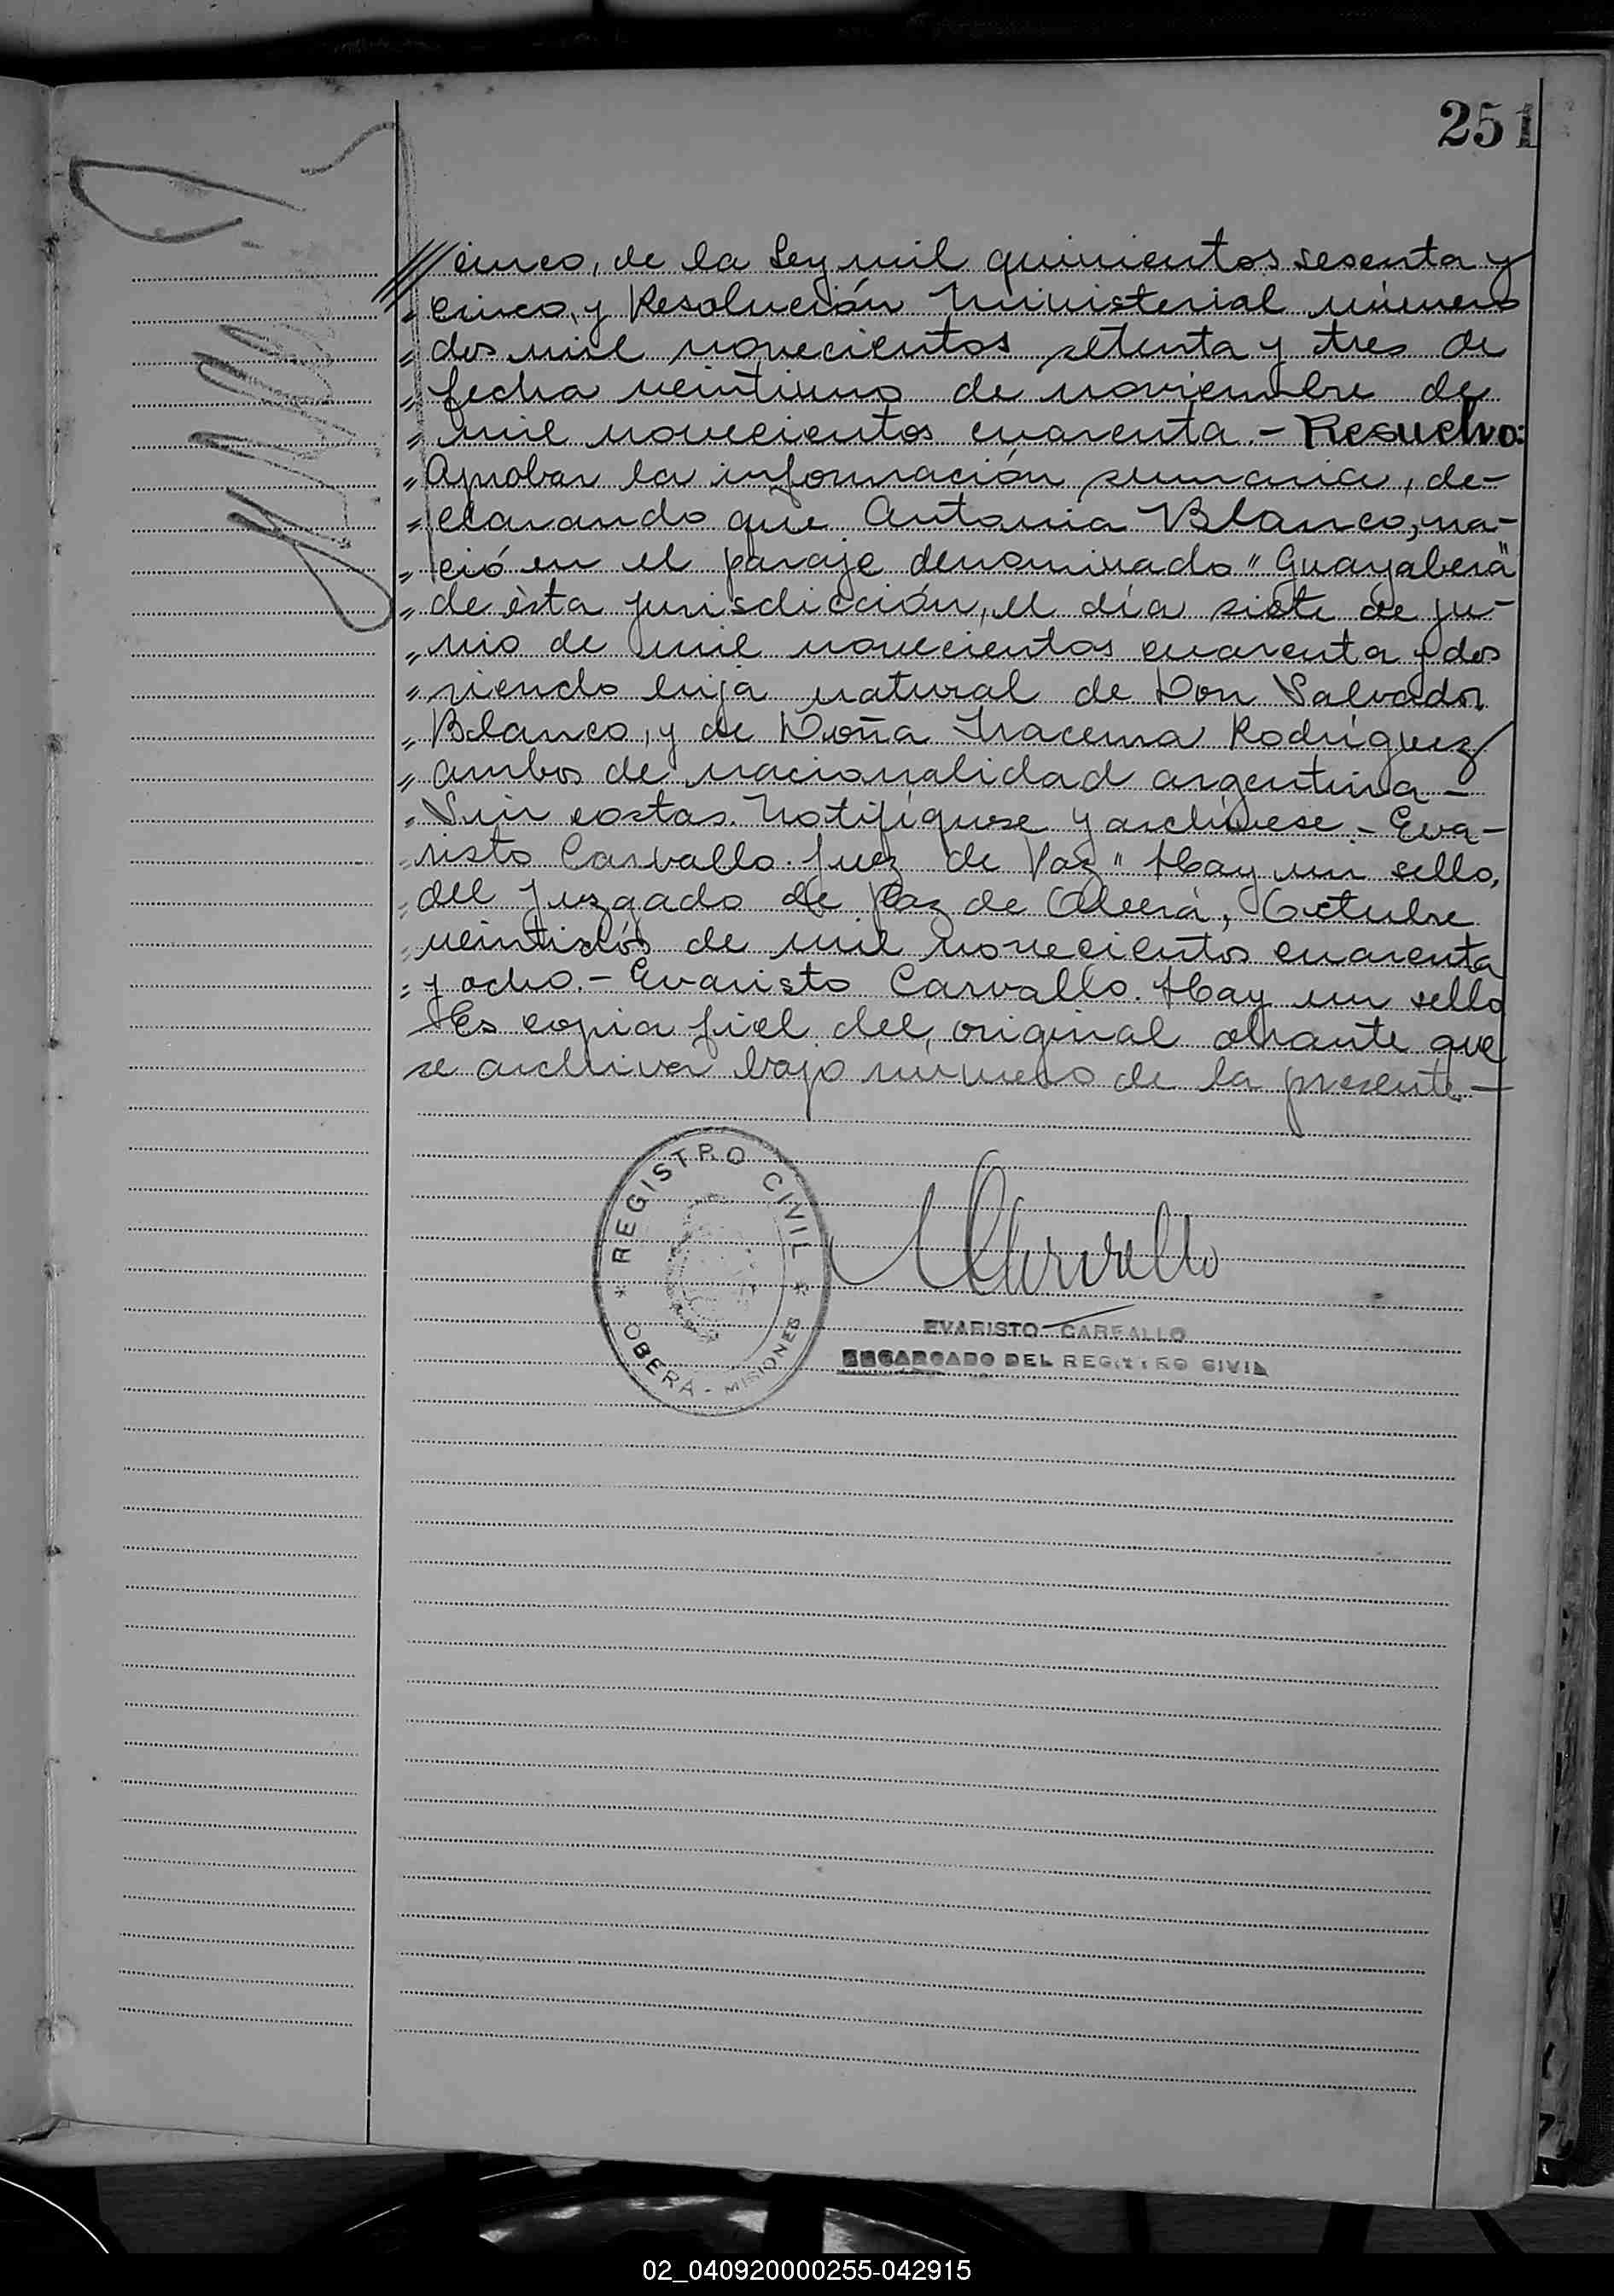 251
cinco, de la Ley mil quinientos sesenta y
" cinco, y Resolución Ministerial número
" dos mil novecientos setenta y tres de
" fecha veintiuno de noviembre de
" mil novecientos cuarenta.- Resuelvo:
" Aprobar la información sumaria, de-
" clarando que Antonia Blanco, na-
" ció en el paraje denominado "Guayabera"
" de ésta jurisdicción, el día siete de ju-
" nio de mil novecientos cuarenta y dos
" siendo hija natural de Don Salvador
" Blanco, y de Doña Iracema Rodríguez
" ambos de nacionalidad argentina -
" Sin costas. Notifíquese y archívese.- Eva-
" risto Carvallo. Juez de Paz" Hay un sello,
" del Juzgado de Paz de Oberá, Octubre
" veintidós de mil novecientos cuarenta
" y ocho.- Evaristo Carvallo. Hay un sello
Es copia fiel del, original obrante que
se archiva bajo número de la presente.-
REGISTRO CIVIL
* OBERÁ - MISIONES *
EVARISTO CARBALLO
ENCARGADO DEL REGISTRO CIVIL
02_040920000255-042915